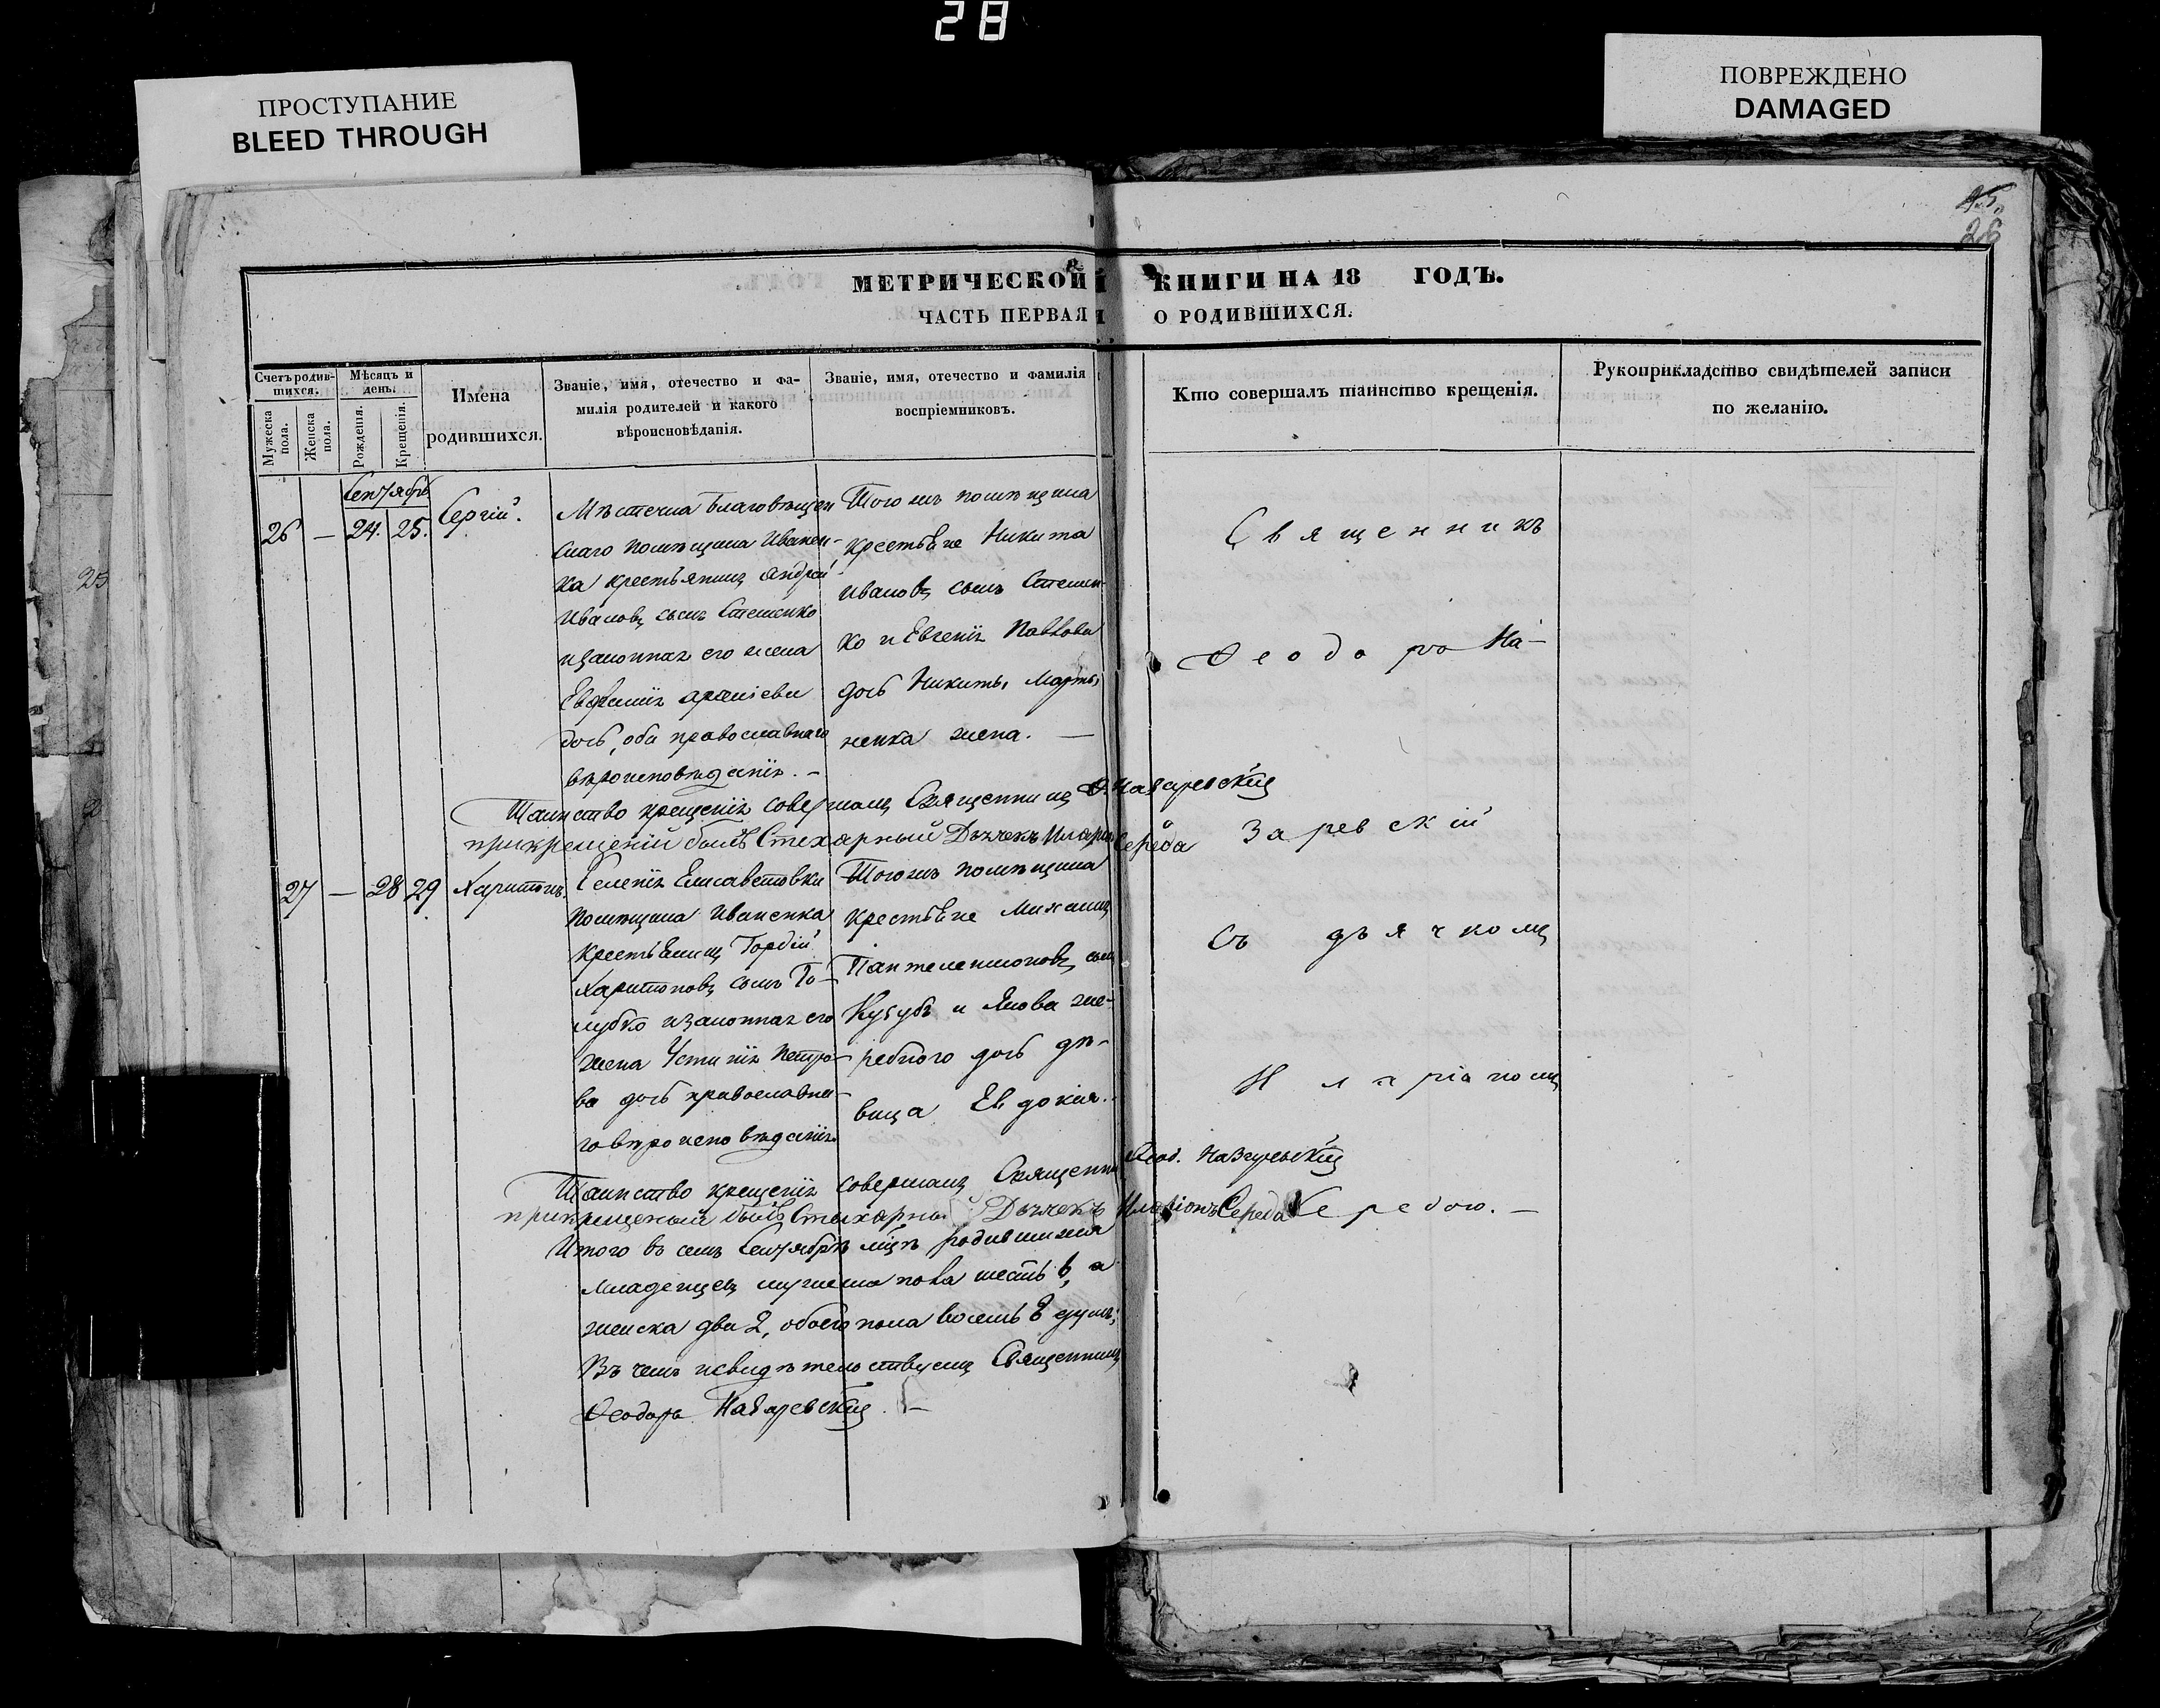 28
ПРОСТУПАНИЕ
BLEED THROUGH
ПОВРЕЖДЕНО
DAMAGED
26
МЕТРИЧЕСКОЙ КНИГИ НА 18 ГОДЪ.
ЧАСТЬ ПЕРВАЯ О РОДИВШИХСЯ.
Счетъ родив-
шихся.
Мужеска пола.
Женска пола.
Мѣсяцъ и
день.
Рожденія.
Крещенія.
Имена
родившихся.
Званіе, имя, отечество и фа-
милія родителей и какого
вѣроисповѣданія.
Званіе, имя, отечество и фамилія
воспріемниковъ.
Кто совершалъ таинство крещенія.
Рукоприкладство свидѣтелей записи
по желанію.
Сентябрь
26 — 24. 25. Сергій.
Мѣстечка Благовѣщен
скаго помѣщика Иванен-
ка крестьянинъ Андрей
Ивановъ сынъ Стешенко
и законная его жена
Евфимія
дочь, оба православнаго
вѣроисповѣданія. —
Тогожъ помѣщика
крестьяне Никита
Ивановъ сынъ Стешен-
ко и Евгенія Павлова
дочь Никиты Марты-
ненка жена. —
Таинство крещенія совершалъ Священникъ Ѳ. Назаревскій
при крещеніи былъ Стихарный Дьячекъ Иларіонъ Середа
27 — 28 29 Харитонъ.
Селенія Елисаветовки
помѣщика Иваненка
крестьянинъ Гордій
Харитоновъ сынъ Го-
лубко и законная его
жена Устинія Петро-
ва дочь православна-
го вѣроисповѣданія
Тогожъ помѣщика
крестьяне Михаилъ
Пантелеимоновъ сынъ
и Якова же-
ребного дочь дѣ-
вица Евдокія.
Таинство крещенія совершалъ Священникъ Ѳеод. Назаревскій
при крещеніи былъ Стихарный Дьячекъ Иларіонъ Середа
Итого въ семъ Сентябрѣ мцѣ родившихся
младенцевъ мужеска пола шесть 6, а
женска два 2, обоего пола восемь 8 душъ;
Въ чемъ и свидѣтельствуемъ Священникъ
Ѳеодоръ Назаревскій. —
Священникъ
Ѳеодоръ На-
заревскій
съ дьячкомъ
Иларіономъ
Середою. —
25